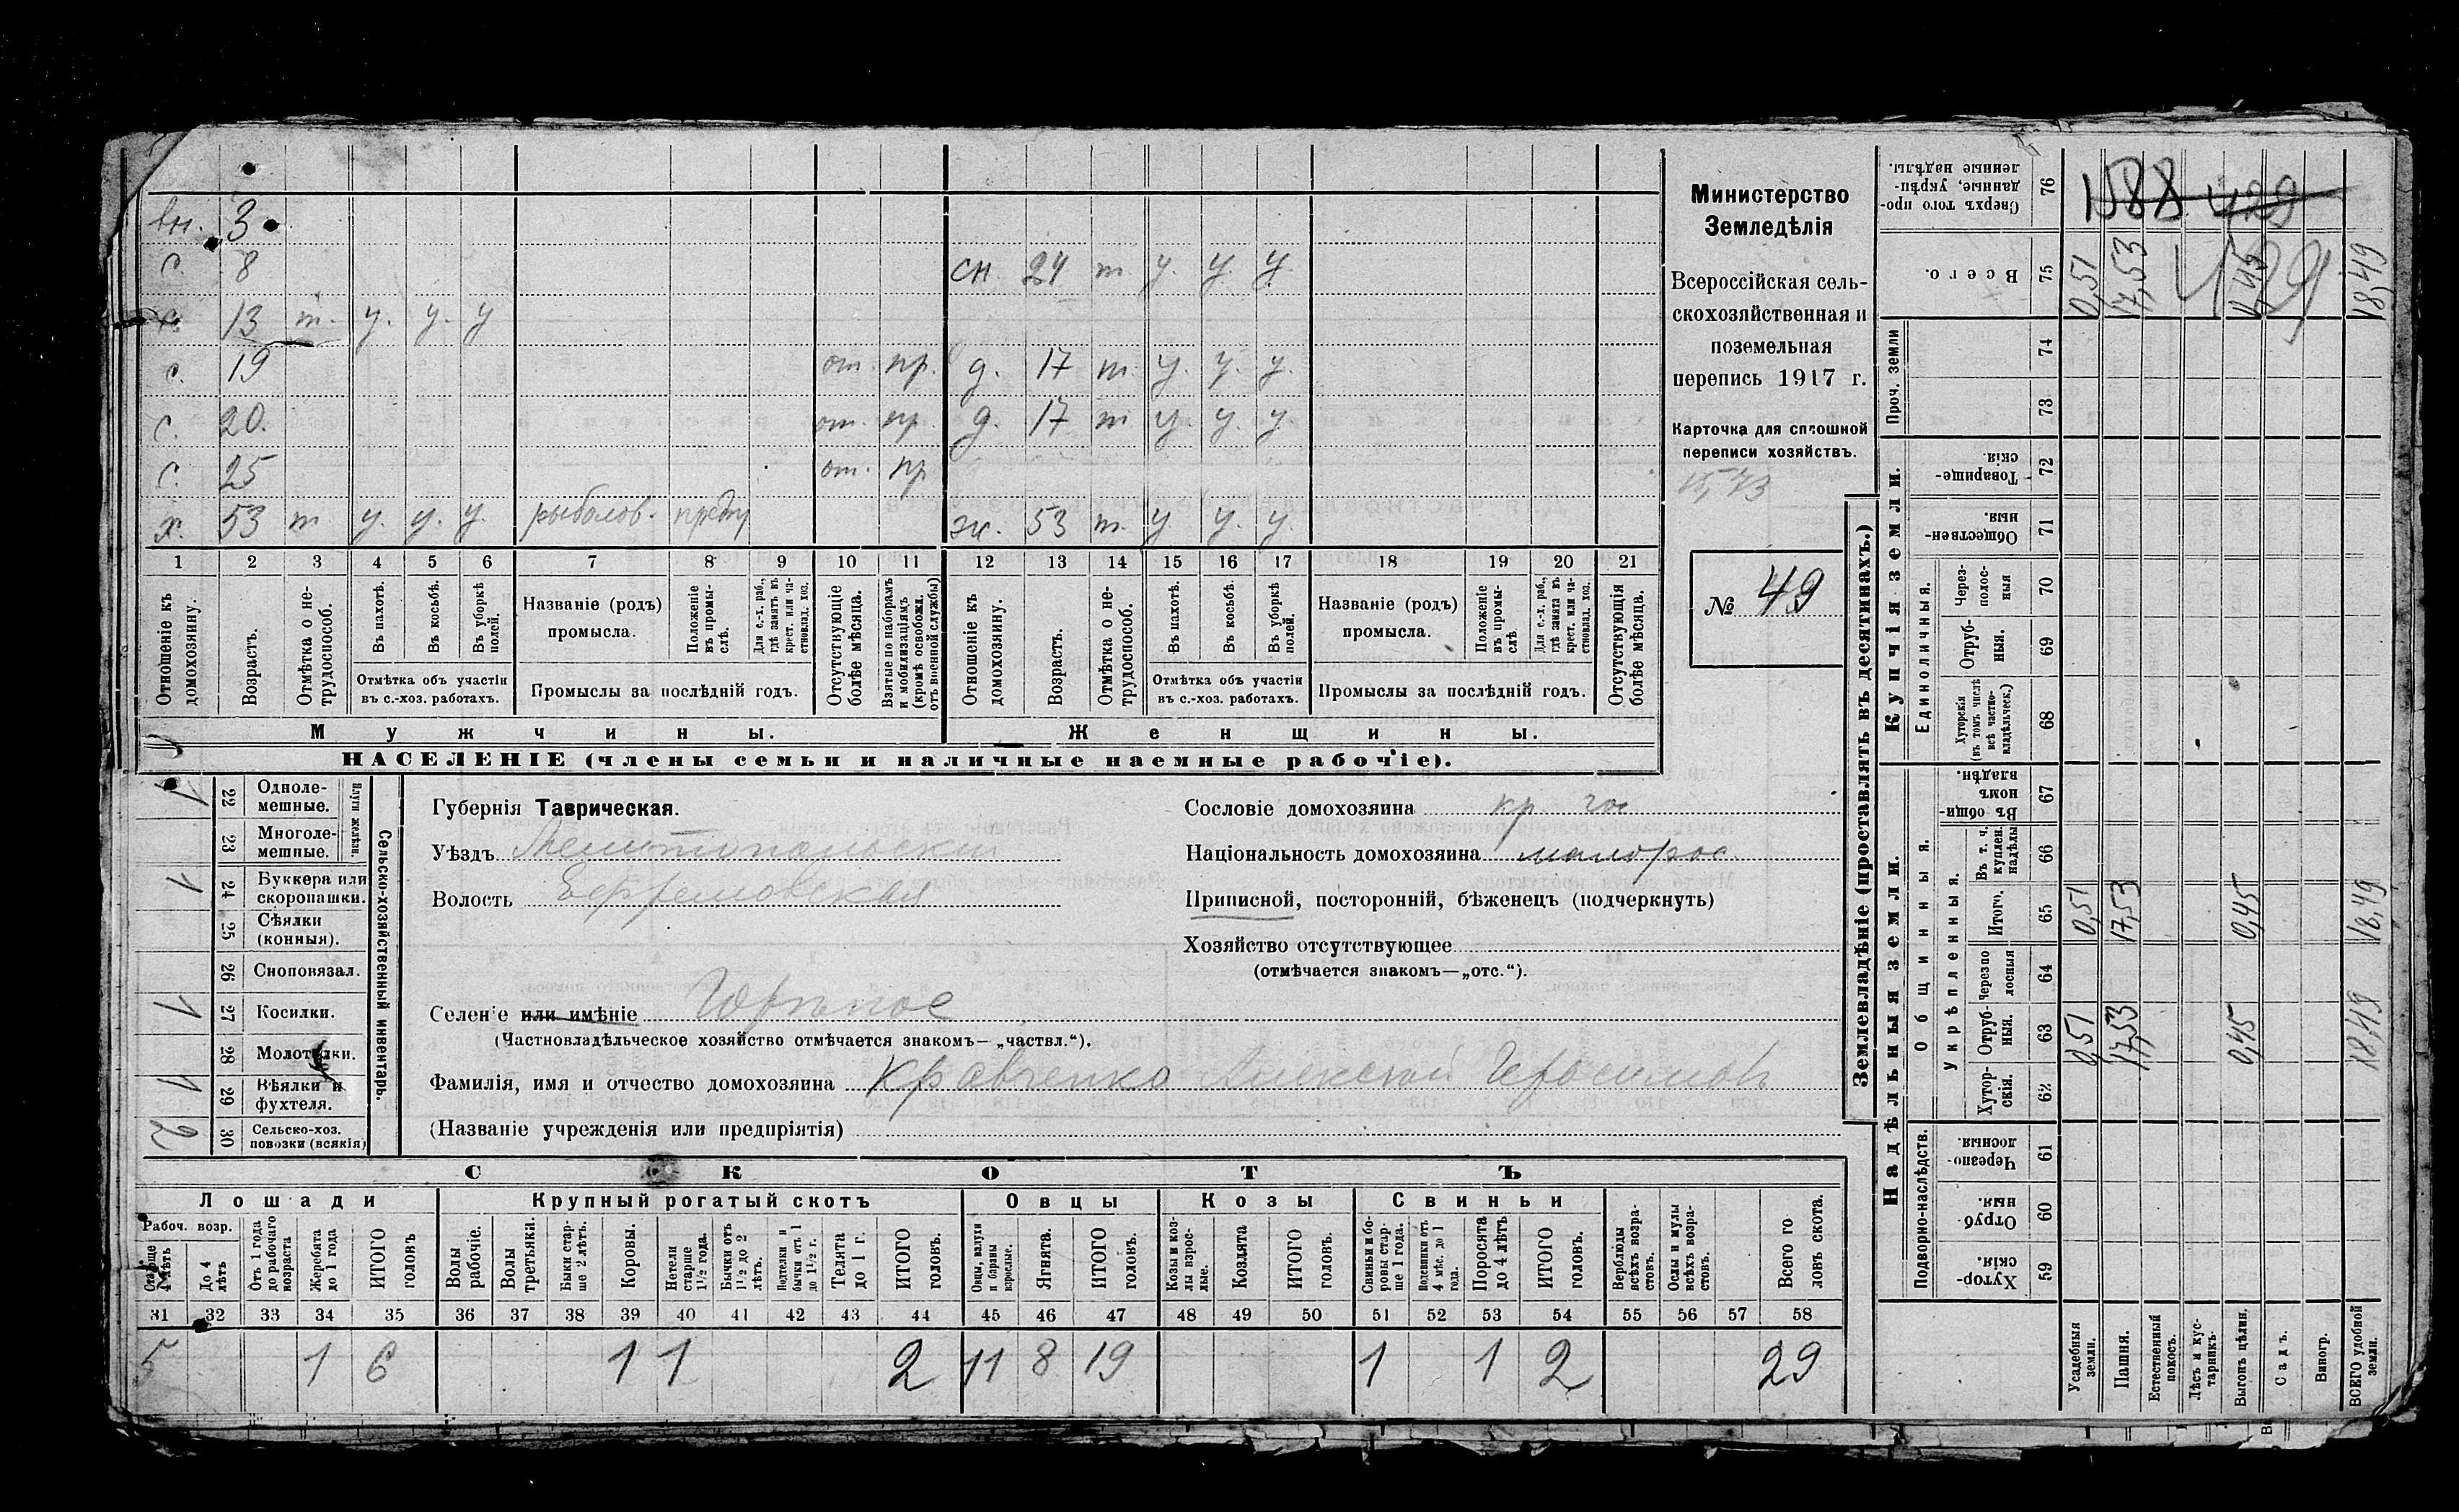 вн. 3
с. 8 сн. 24 т у. у. у.
с. 13 т. у. у. у
с. 19 от. пр. д. 17 т. у. у. у.
с. 20. от. пр. д. 17 т у. у. у.
с. 25 от. пр
х. 53 т у. у. у. рыболов. предпр ж. 53 т. у у. у.
1 2 3 4 5 6 7 8 9 10 11 12 13 14 15 16 17 18 19 20 21
Отношеніе къ домохозяину.
Возрастъ.
Отмѣтка о не-трудоспособ.
Въ пахотѣ.
Въ косьбѣ.
Въ уборкѣ полей.
Отмѣтка объ участіи въ с.-хоз. работахъ.
Названіе (родъ) промысла.
Положеніе въ промы-слѣ.
Для с.-х. раб., гдѣ занятъ въ крест. или ча-стновлад. хоз.
Промыслы за послѣдній годъ.
Отсутствующіе болѣе мѣсяца.
Взятые по наборамъ и мобилизаціямъ (кромѣ освобожд. отъ военной службы)
Отношеніе къ домохозяину.
Возрастъ.
Отмѣтка о не-трудоспособ.
Въ пахотѣ.
Въ косьбѣ.
Въ уборкѣ полей.
Отмѣтка объ участіи въ с.-хоз. работахъ.
Названіе (родъ) промысла.
Положеніе въ промы-слѣ
Для с.-х. раб., гдѣ занята въ крест. или ча-стновлад. хоз.
Промыслы за послѣдній годъ.
Отсутствующія болѣе мѣсяца.
Мужчины. Женщины.
НАСЕЛЕНІЕ (члены семьи и наличные наемные рабочіе).
Министерство
Земледѣлія
Всероссійская сель-
скохозяйственная и
поземельная
перепись 1917 г.
Карточка для сплошной
переписи хозяйствъ.
№ 49
Сельско-хозяйственный инвентарь.
Плуги желѣзн.
1 22 Одноле-мешные.
23 Многоле-мешные.
1 24 Буккера или скоропашки.
25 Сѣялки (конныя).
26 Сноповязал.
1 27 Косилки.
28 Молотилки.
1 29 Вѣялки и фухтеля.
2 30 Сельско-хоз. повозки (всякія)
Губернія Таврическая.
Уѣздъ Мелитопольскій
Волость Ефремовская
Селеніе или имѣніе Горѣлое
(Частновладѣльческое хозяйство отмѣчается знакомъ—„частвл.“).
Фамилія, имя и отчество домохозяина Кравченко Алексѣй Герасимовъ
(Названіе учрежденія или предпріятія)
Сословіе домохозяина кр.
Національность домохозяина малорос.
Приписной, посторонній, бѣженецъ (подчеркнуть)
Хозяйство отсутствующее
(отмѣчается знакомъ—„отс.“).
СКОТЪ
Лошади Крупный рогатый скотъ Овцы Козы Свиньи
Рабоч. возр.
Старше 4 лѣтъ
До 4 лѣтъ
Отъ 1 года до рабочаго возраста
Жеребята до 1 года
ИТОГО головъ
Волы рабочіе.
Волы третьяки.
Быки стар-ше 2 лѣтъ.
Коровы.
Нетели старше 1½ года.
Бычки отъ 1½ до 2 лѣтъ.
Подтелки и бычки отъ 1 до 1½ г.
Телята до 1 г.
ИТОГО головъ.
Овцы, валухи и бараны взрослые.
Ягнята.
ИТОГО головъ.
Козы и коз-лы взрос-лые.
Козлята
ИТОГО головъ.
Свиньи и бо-ровы стар-ше 1 года.
Подсвинки отъ 4 мѣс. до 1 года.
Поросята до 4 мѣс.
ИТОГО головъ.
Верблюды всѣхъ возра-стовъ.
Ослы и мулы всѣхъ возра-стовъ.
Всего го ловъ скота.
31 32 33 34 35 36 37 38 39 40 41 42 43 44 45 46 47 48 49 50 51 52 53 54 55 56 57 58
5 1 6 1 1 2 11 8 19 1 1 2 29
Землевладѣніе (проставлять въ десятинахъ.)
1588 429
429
76 Сверхъ того про-данные, укрѣп-ленные надѣлы.
75 Всего. 0,51 17,53 0,45 18,49
Проч. земли
74
73
Купчія земли.
72 Товарище-скія.
71 Обществен-ныя.
Единоличныя.
70 Через-полос-ныя
69 Отруб-ныя.
68 Хуторскія (въ томъ числѣ всѣ частно-владѣльческ.)
Надѣльныя земли.
Общинныя.
67 Въ общи-номъ владѣн.
Укрѣпленныя.
66 Въ т. ч. куплен. надѣлы
65 Итого. 0,51 17,53 0,45 18,49
64 Черезпо лосныя
63 Отруб-ныя. 0,51 17,53 0,45 18,49
62 Хутор-скія.
Подворно-наслѣдств.
61 Черезпо-лосныя.
60 Отруб ныя.
59 Хутор-скія.
Усадебныя земли.
Пашня.
Естественный покосъ.
Лѣсъ и кус-тарникъ.
Выгонъ цѣлин.
Садъ.
Виногр.
ВСЕГО удобной земли.